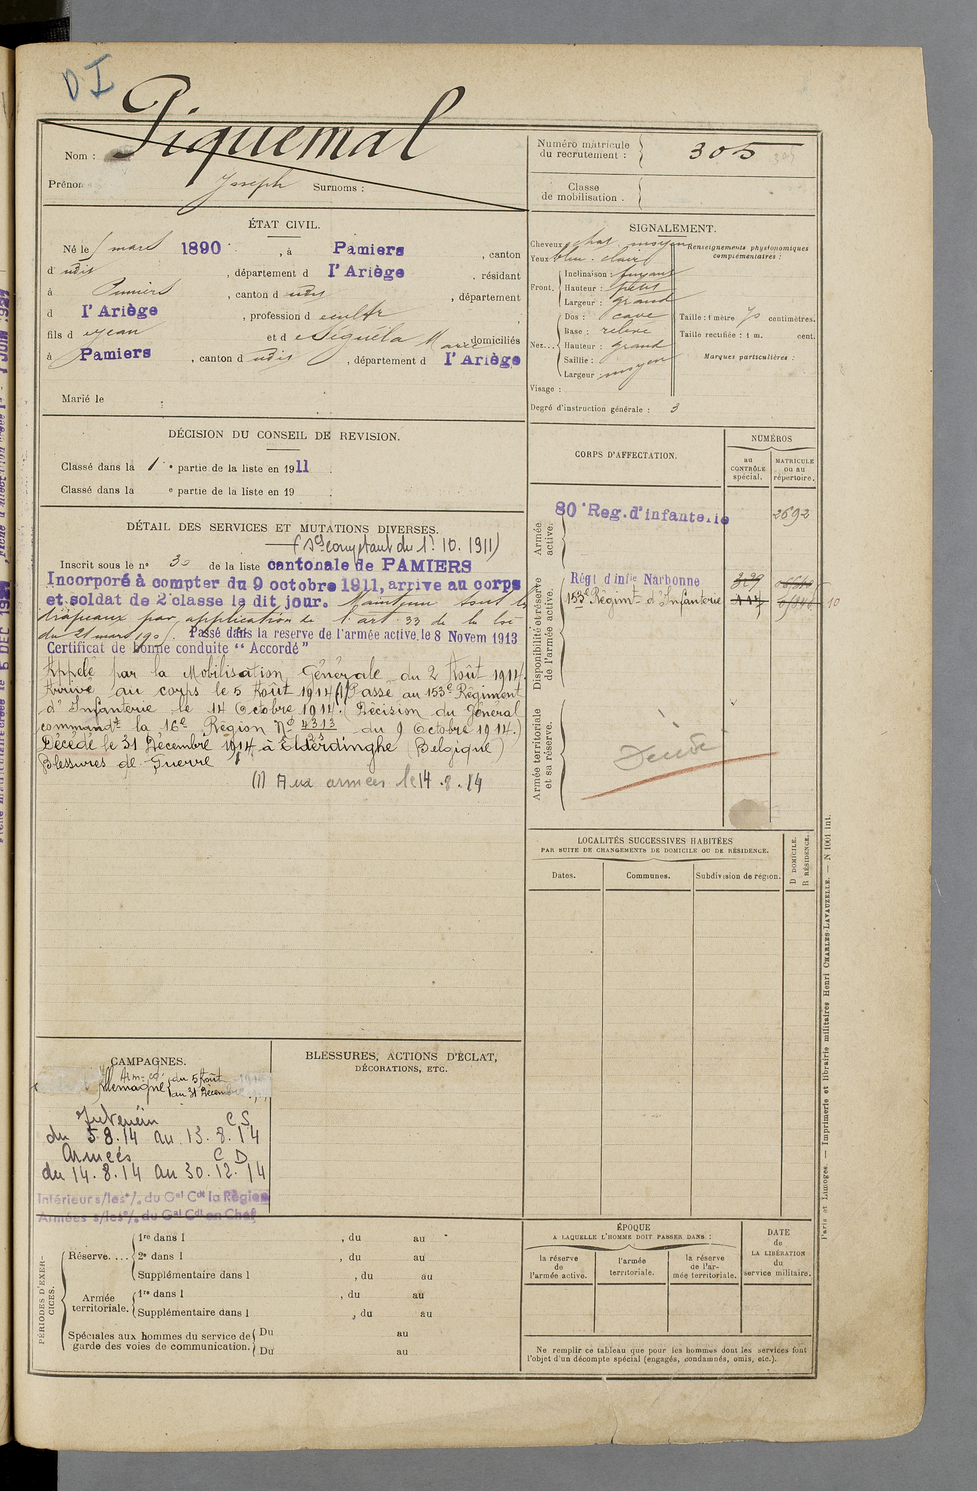 DI
Nom : Piquemal
Prénoms Joseph Surnoms :
Numéro matricule du recrutement : 305
Classe de mobilisation .
ÉTAT CIVIL.
Né le mars 1890 , à Pamiers , canton
d udit , département d l'Ariège , résidant
à Pamiers , canton d udit , département
d l'Ariège , profession d cultr ,
fils d Jean et d Séguéla Marie domiciliés
à Pamiers , canton d udit , département d l'Ariège
Marié le
SIGNALEMENT.
Cheveux chat. moyen
Yeux bleu clair
Front. Inclinaison : fuyant
Hauteur : petit
Largeur : grand
Nez... Dos : cave
Base : relevé
Hauteur : grand
Saillie :
Largeur moyen
Visage :
Renseignements physionomiques complémentaires :
Taille : 1 mètre 70 centimètres.
Taille rectifiée : 1 m. cent.
Marques particulières :
Degré d'instruction générale : 3
DÉCISION DU CONSEIL DE REVISION.
Classé dans la 1 e partie de la liste en 1911
Classé dans la e partie de la liste en 19
DÉTAIL DES SERVICES ET MUTATIONS DIVERSES.
(Son comptant du 1er 10. 1911)
Inscrit sous le n° 30 de la liste cantonale de PAMIERS
Incorporé à compter du 9 octobre 1911, arrive au corps
et soldat de 2e classe le dit jour. Maintenu sous les
drapeaux par application de l'art 33 de la loi
du 21 mars 190 . Passé dans la reserve de l'armée active, le 8 Novem 1913
Certificat de bonne conduite “ Accordé ”
Appelé par la Mobilisation Générale du 2 Août 1914.
Arrivé au corps le 5 Août 1914 (1) Passé au 153e Régiment
d'Infanterie le 14 Octobre 1914. (Décision du Général
commandt la 16e Région No 4313 du 9 Octobre 1914.)
Décédé le 31 Décembre 1914 à Elderdinghe (Belgique)
Blessures de Guerre
(1) Aux armées le 14 . 8 . 14
CORPS D'AFFECTATION.
NUMÉROS
au CONTRÔLE spécial.
MATRICULE ou au répertoire.
Armée active.
80e Reg. d'infanterie 2692
Disponibilité et réserve de l'armée active.
Régt d'infie Narbonne 
153e Régimt d'Infanterie 
10
Armée territoriale et sa réserve.
Décédé
LOCALITÉS SUCCESSIVES HABITÉES
PAR SUITE DE CHANGEMENTS DE DOMICILE OU DE RÉSIDENCE.
Dates.
Communes.
Subdivision de région.
D DOMICILE. R RÉSIDENCE.
CAMPAGNES.
Allemagne du 5 Août
au 31 Décembre
Intérieur C S
du 5.8.14 au 13.8.14
Armées C D
du 14.8.14 au 30.12.14
Intérieur s/les o/. du Gal Cdt la Région
Armées s/les o/. du Gal Cdt en Chef
BLESSURES, ACTIONS D'ÉCLAT,
DÉCORATIONS, ETC.
PÉRIODES D'EXERCICES.
Réserve.... 1re dans l , du au
2e dans l , du au
Supplémentaire dans l , du au
Armée territoriale. 1re dans l , du au
Supplémentaire dans l , du au
Spéciales aux hommes du service de garde des voies de communication. Du au
Du au
ÉPOQUE
A LAQUELLE L'HOMME DOIT PASSER DANS :
la réserve de l'armée active.
l'armée territoriale.
la réserve de l'armée territoriale.
DATE de LA LIBÉRATION du service militaire.
Ne remplir ce tableau que pour les hommes dont les services font
l'objet d'un décompte spécial (engagés, condamnés, omis, etc.).
Paris et Limoges. — Imprimerie et librairie militaires Henri CHARLES-LAVAUZELLE. — N 1001 int.